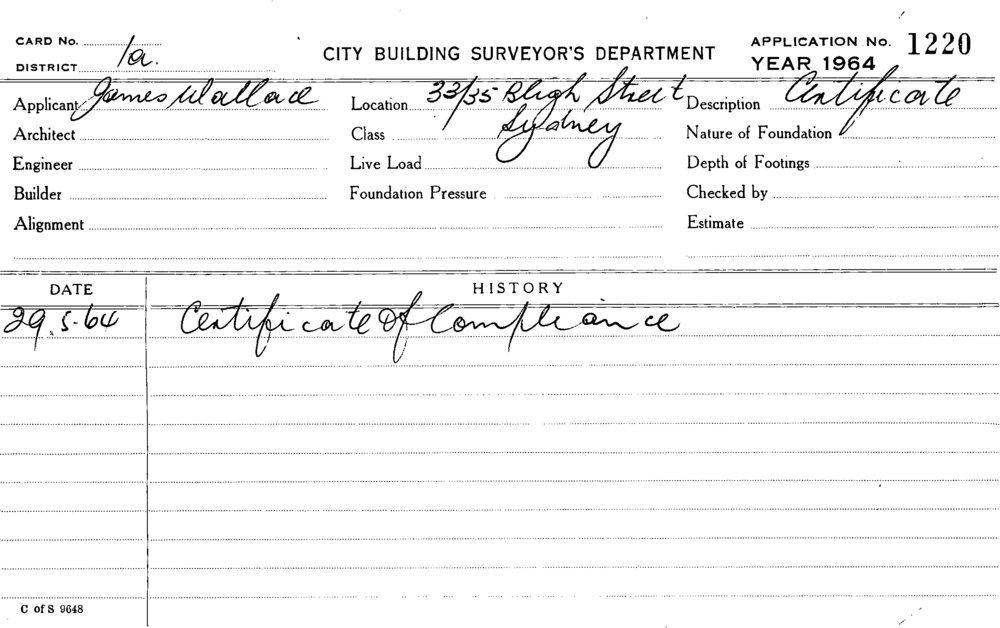 CARD No. CITY BUILDING SURVEYOR'S DEPARTMENT APPLICATION No. 1220
DISTRICT 1a. YEAR 1964
Applicant James Wallace Location 33/35 Bligh Street Description Certificate
Architect Class Sydney Nature of Foundation
Engineer Live Load Depth of Footings
Builder Foundation Pressure Checked by
Alignment Estimate
DATE HISTORY
29.5-64 Certificate Of Compliance
C of S 9648